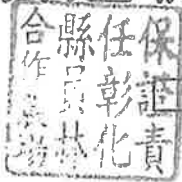 保証責
任彰化
縣員林
合作農場